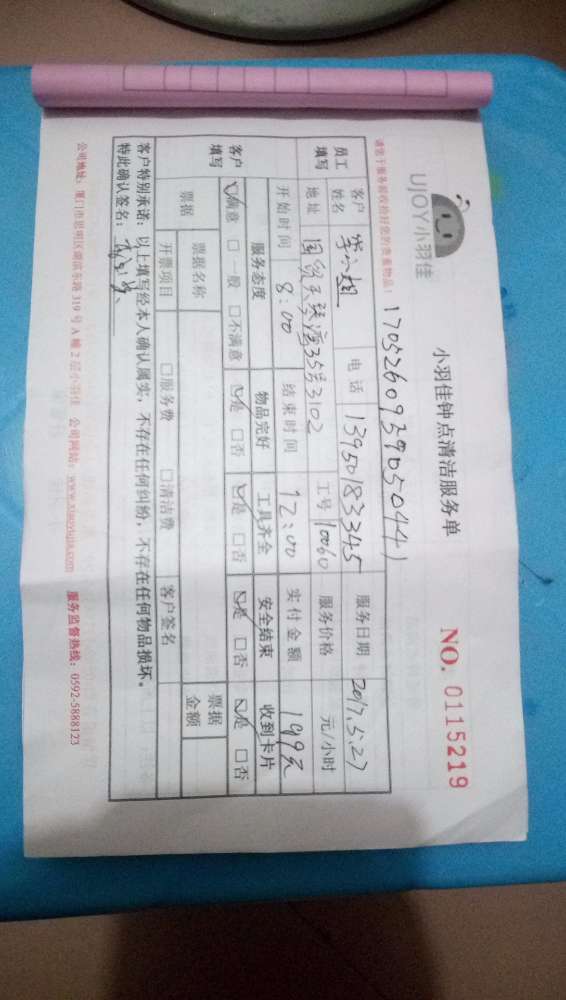 UJOY小羽佳
小羽佳钟点清洁服务单
NO. 0115219
请您于服务前收拾好您的贵重物品！
1705260939050441
员工填写 客户姓名 李小姐 电话 13950183345 服务日期 2017.5.27
地址 国贸天琴湾35号3102 工号 10060 服务价格 元/小时
开始时间 8:00 结束时间 12:00 实付金额 199元
客户填写 服务态度 物品完好 工具齐全 安全结束 收到卡片
☑满意 □一般 □不满意 ☑是 □否 ☑是 □否 ☑是 □否 ☑是 □否
票据 票据名称 票据金额
开票项目 □服务费 □清洁费 客户签名
客户特别承诺：以上填写经本人确认属实，不存在任何纠纷，不存在任何物品损坏。
特此确认签名：
公司地址：厦门市思明区湖滨东路319号A幢2层小羽佳 公司网站：www.xiaoyujia.com 服务监督热线：0592-5888123